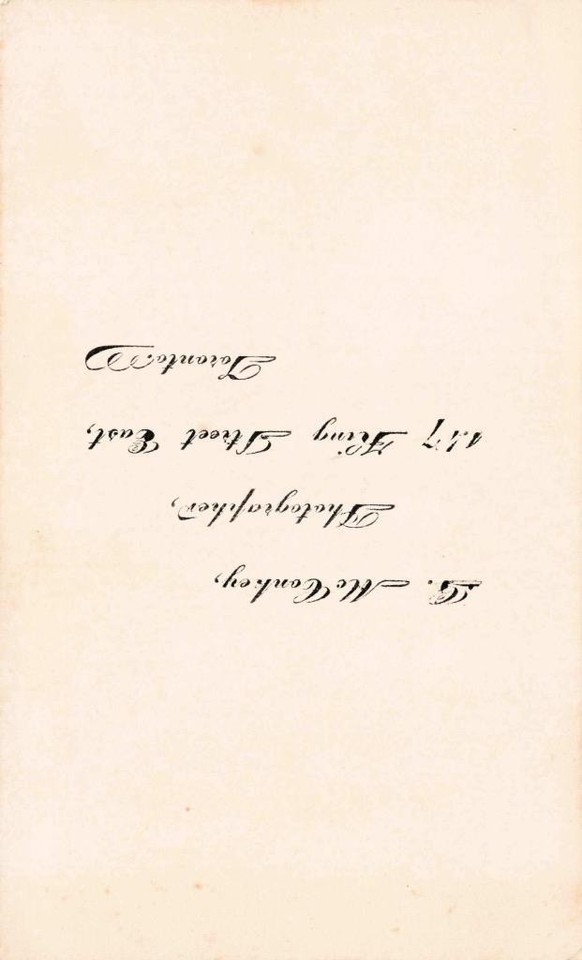 McConkey,
Photographer,
147 King Street East,
Toronto.